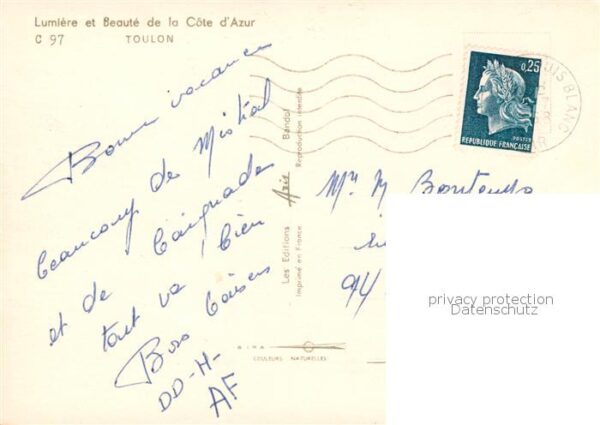 Lumière et Beauté de la Côte d'Azur
C 97 TOULON
Bonne vacances
beaucoup de Mistral
et de baignades
tout va bien
Bons baisers
DD-H-
AF
Les Editions Azis Bandol
Imprimé en France Reproduction interdite
SIRA
COULEURS NATURELLES
0,25
POSTES
REPUBLIQUE FRANÇAISE
BLANC
Mr M
94
privacy protection
Datenschutz